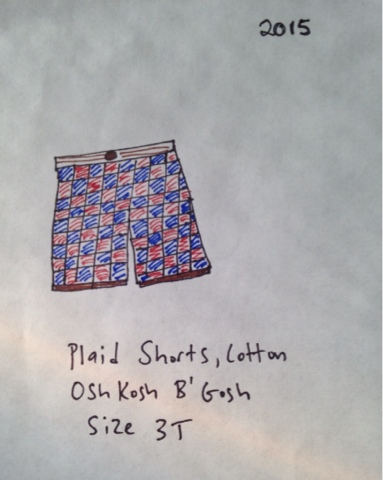 2015
Plaid Shorts, Cotton
OshKosh B'Gosh
Size 3T